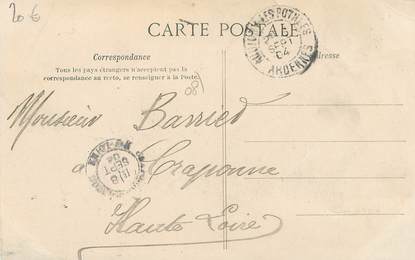 20 €
CARTE POSTALE
Correspondance
Adresse
Tous les pays étrangers n'acceptent pas la
correspondance au recto, se renseigner à la Poste.
SEPT
04
ARDENNES
08
Monsieur Barriel
à Craponne
Haute Loire
SEPT
04